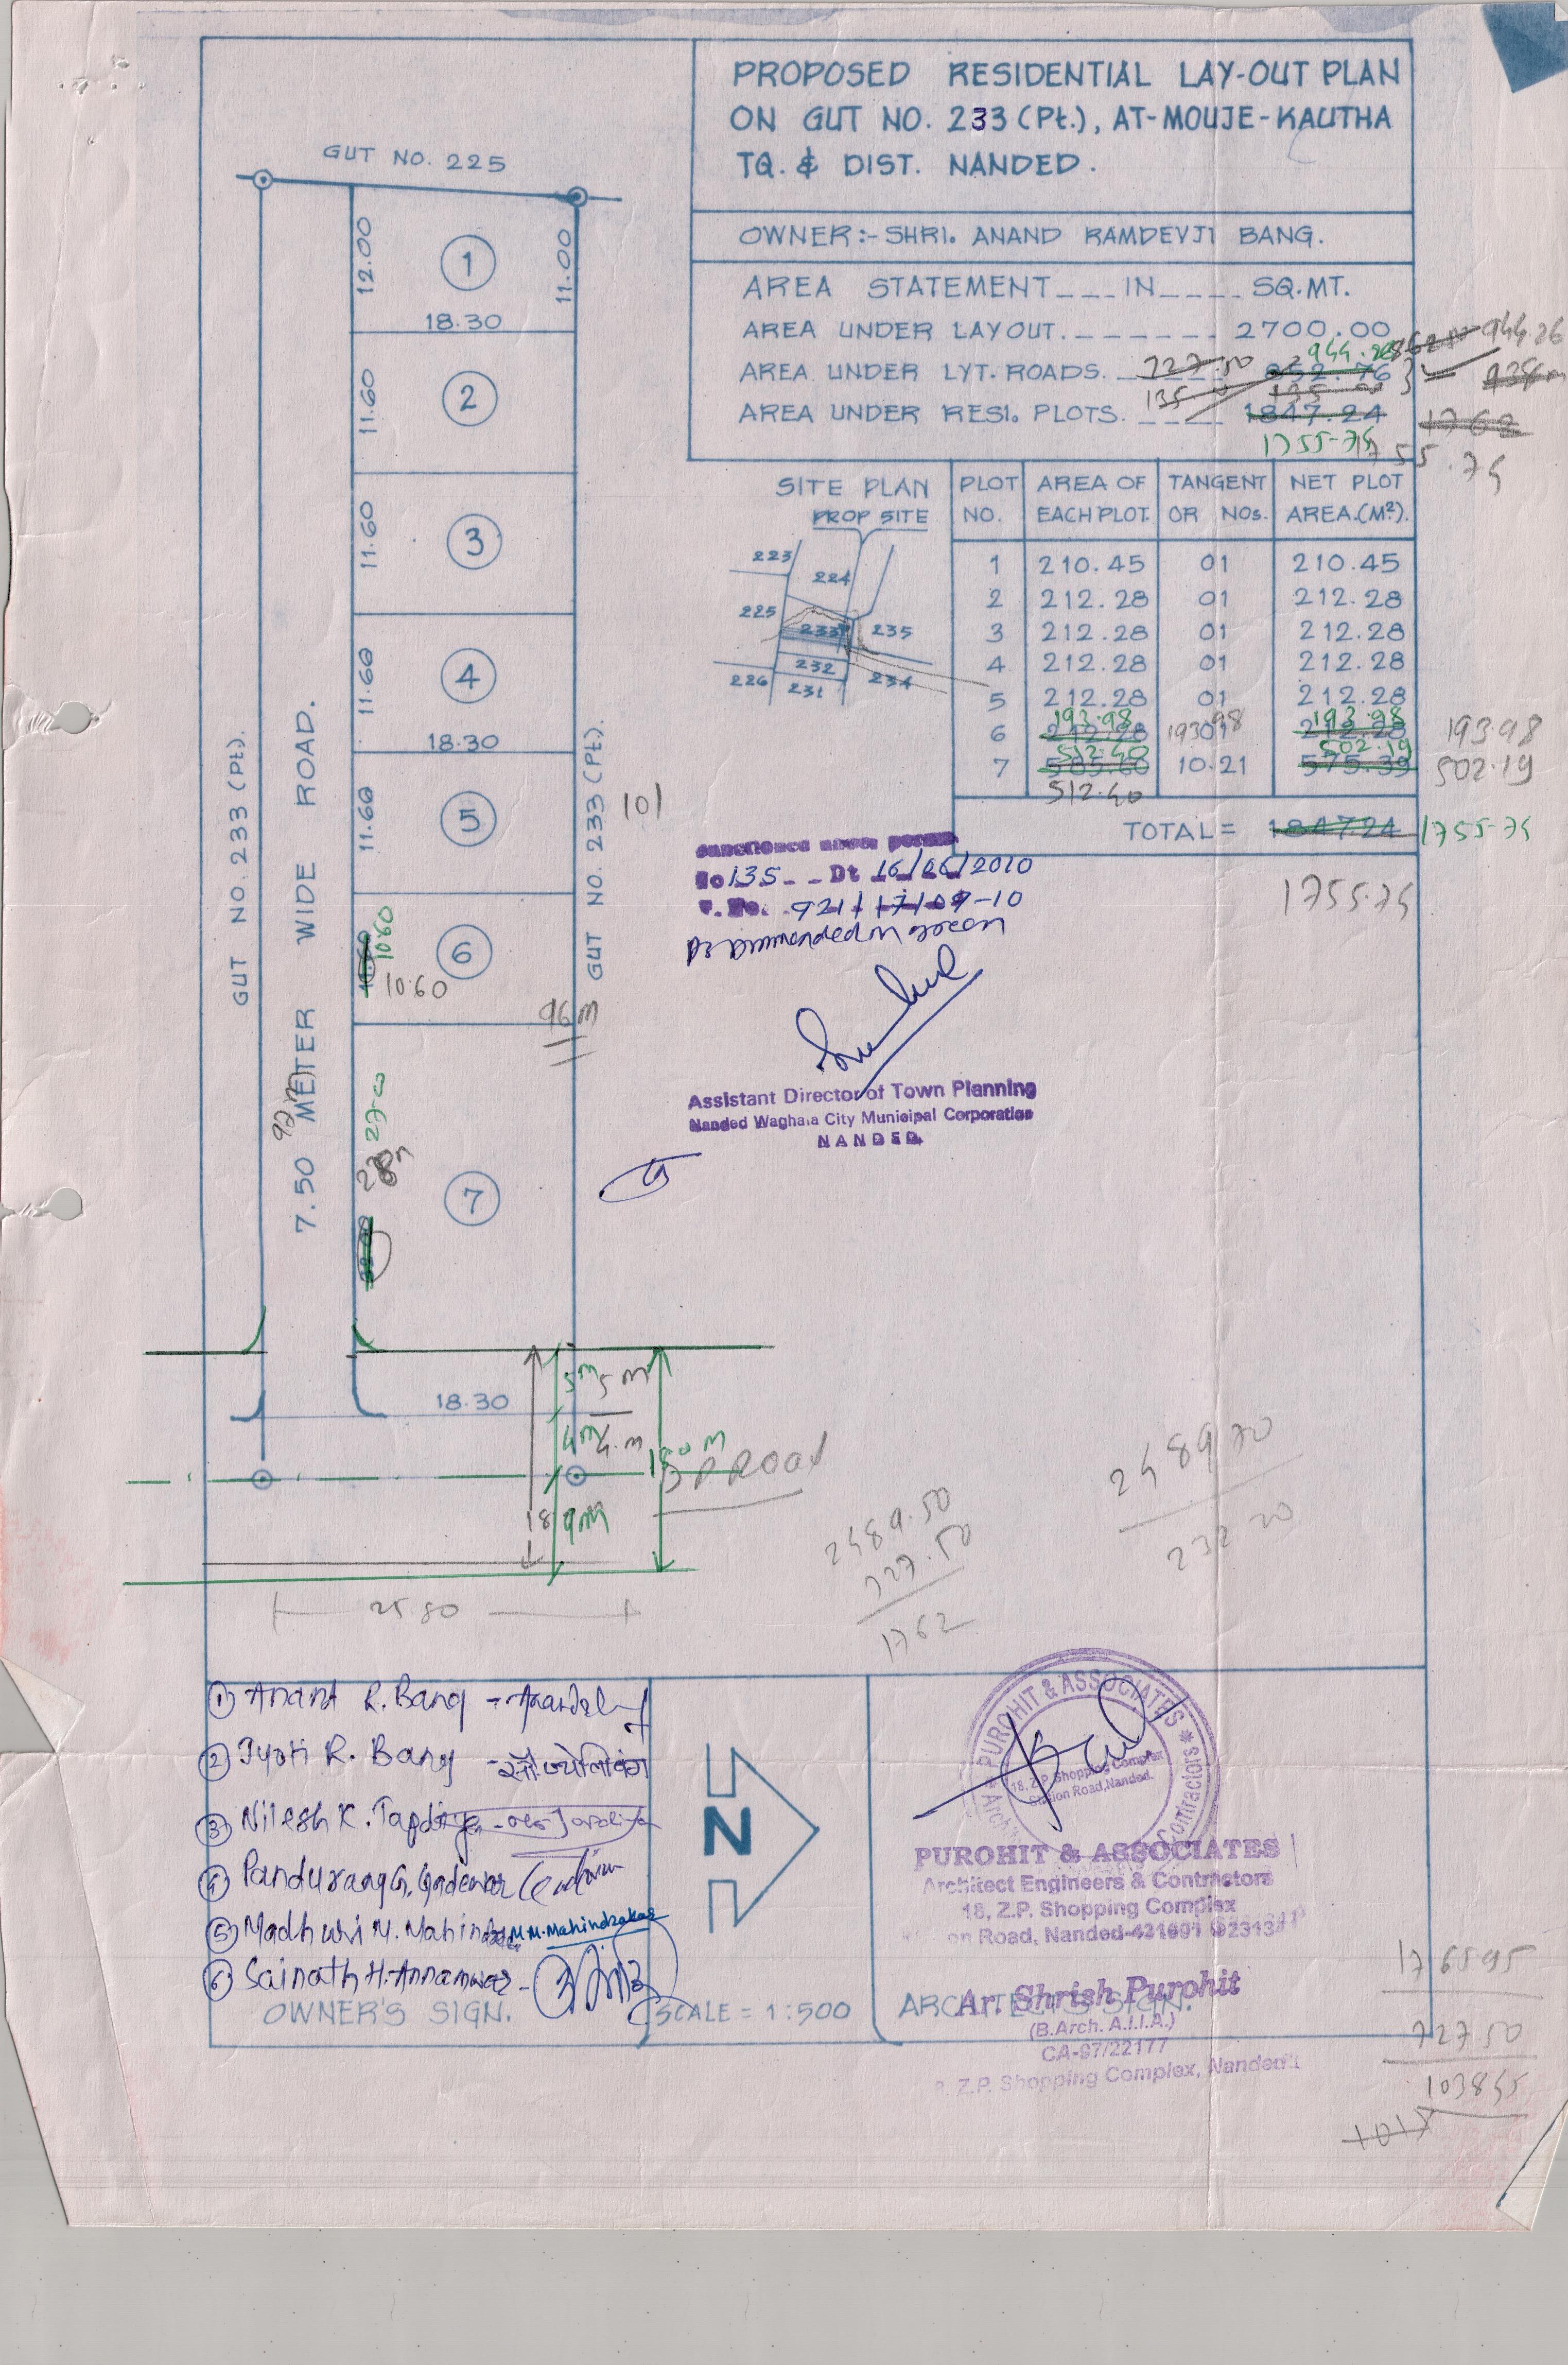 PROPOSED RESIDENTIAL LAY-OUT PLAN
ON GUT NO. 233 (Pt.), AT-MOUJE-KAUTHA
TQ. & DIST. NANDED.
OWNER:- SHRI. ANAND RAMDEVJI BANG.
AREA STATEMENT___IN____SQ.MT.
AREA UNDER LAYOUT.-------2700.00
944.26 944.26
AREA UNDER LYT. ROADS. 727.50 852.76
135 135
AREA UNDER RESI. PLOTS. ____ 1847.24 1762
1755-75
1755.75
SITE PLAN
PROP SITE
223
224
225
233
235
232
226
231
234
PLOT NO. AREA OF EACH PLOT. TANGENT OR NOS. NET PLOT AREA.(M²).
1 210.45 01 210.45
2 212.28 01 212.28
3 212.28 01 212.28
4 212.28 01 212.28
5 212.28 01 212.28
193.98 193.98
6 212.28 01 212.28 193.98
512.40 502.19
7 585.60 10.21 575.39 502.19
512.40
TOTAL = 1847.24 1755-75
1755.75
GUT NO. 225
12.00
1
11.00
18.30
11.60
2
11.60
3
11.60
4
18.30
11.60
5
101
10.60
6
10.60
96 m
GUT NO. 233 (Pt).
7.50 METER WIDE ROAD.
92 m
GUT NO. 233 (Pt).
27.00
7
18.30
5m 5 m
4m 4.m
18.0 m
DP ROAD
18 9m
25.80
No 135 -- Dt 16/06/2010
921/17/09-10
Recommended in green
Assistant Director of Town Planning
Nanded Waghala City Municipal Corporation
NANDED.
2489.50
727.50
1762
1765.95
727.50
1038.45
1 Anand R. Bang -
2 Jyoti R. Bang - सौ. ज्योति बंग
3 Nilesh K. Tapdiya -
4 Pandurang G.
5 Madhuri M. Mahindrakar M.M.Mahindrakar
6 Sainath H. Annamwar -
OWNER'S SIGN.
N
SCALE = 1:500
PUROHIT & ASSOCIATES
18, Z.P. Shopping Complex
Station Road, Nanded.
Contractors
PUROHIT & ASSOCIATES
Architect Engineers & Contractors
18, Z.P. Shopping Complex
on Road, Nanded-431601
ARCHITECT'S SIGN.
Ar. Shrish Purohit
(B.Arch. A.I.I.A.)
CA-97/22177
Z.P. Shopping Complex, Nanded